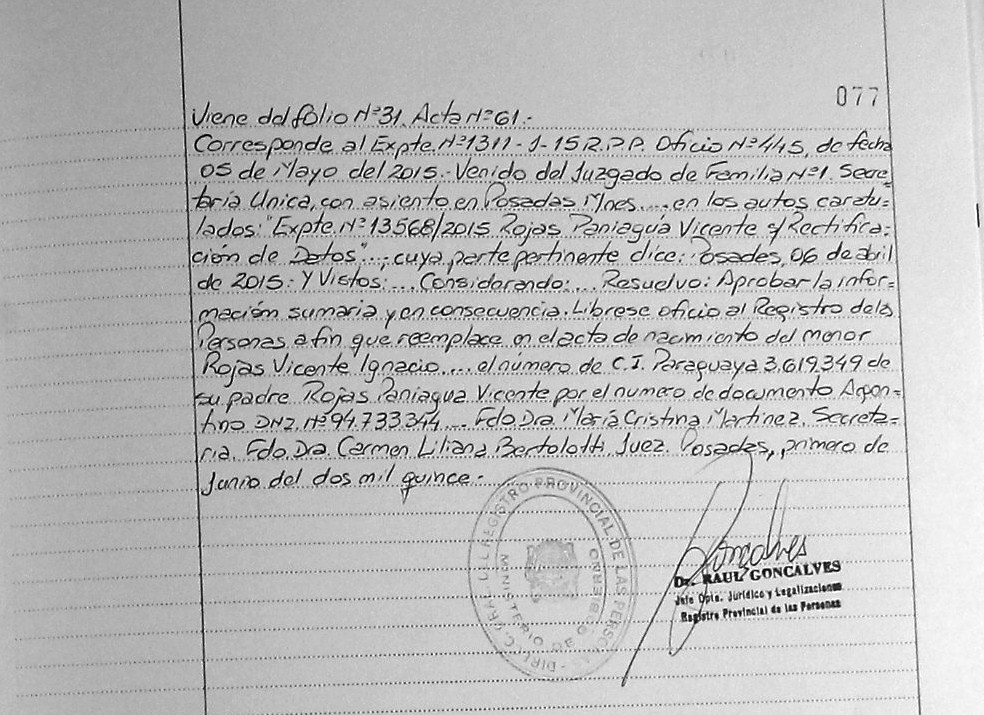 077
Viene del folio Nº31. Acta Nº61.-
Corresponde al Expte. Nº1311-J-15 R.P.P. Oficio Nº445, de fecha
05 de Mayo del 2015.- Venido del Juzgado de Familia Nº1. Secre-
taría Unica, con asiento en Posadas Mnes.... en los autos caratu-
lados: "Expte. Nº 13568/2015 Rojas Paniagua Vicente s/ Rectifica-
ción de Datos"..., cuya parte pertinente dice: Posadas, 06 de abril
de 2015: Y Vistos:... Considerando:... Resuelvo: Aprobar la infor-
mación sumaria y en consecuencia. Librese oficio al Registro de las
Personas a fin que reemplace en el acta de nacimiento del menor
Rojas Vicente Ignacio.... el número de C.I. Paraguaya 3.619.349 de
su padre Rojas Paniagua Vicente por el numero de documento Argen-
tino DNI. Nº94.733.344.... Fdo. Dra. María Cristina Martinez. Secreta-
ria. Fdo. Dra. Carmen Liliana Bertolotti. Juez. Posadas, primero de
Junio del dos mil quince.-
REGISTRO PROVINCIAL DE LAS PERSONAS
MINISTERIO DE GOBIERNO
Goncalves
Dr. RAUL GONCALVES
Jefe Dpto. Jurídico y Legalizaciones
Registro Provincial de las Personas